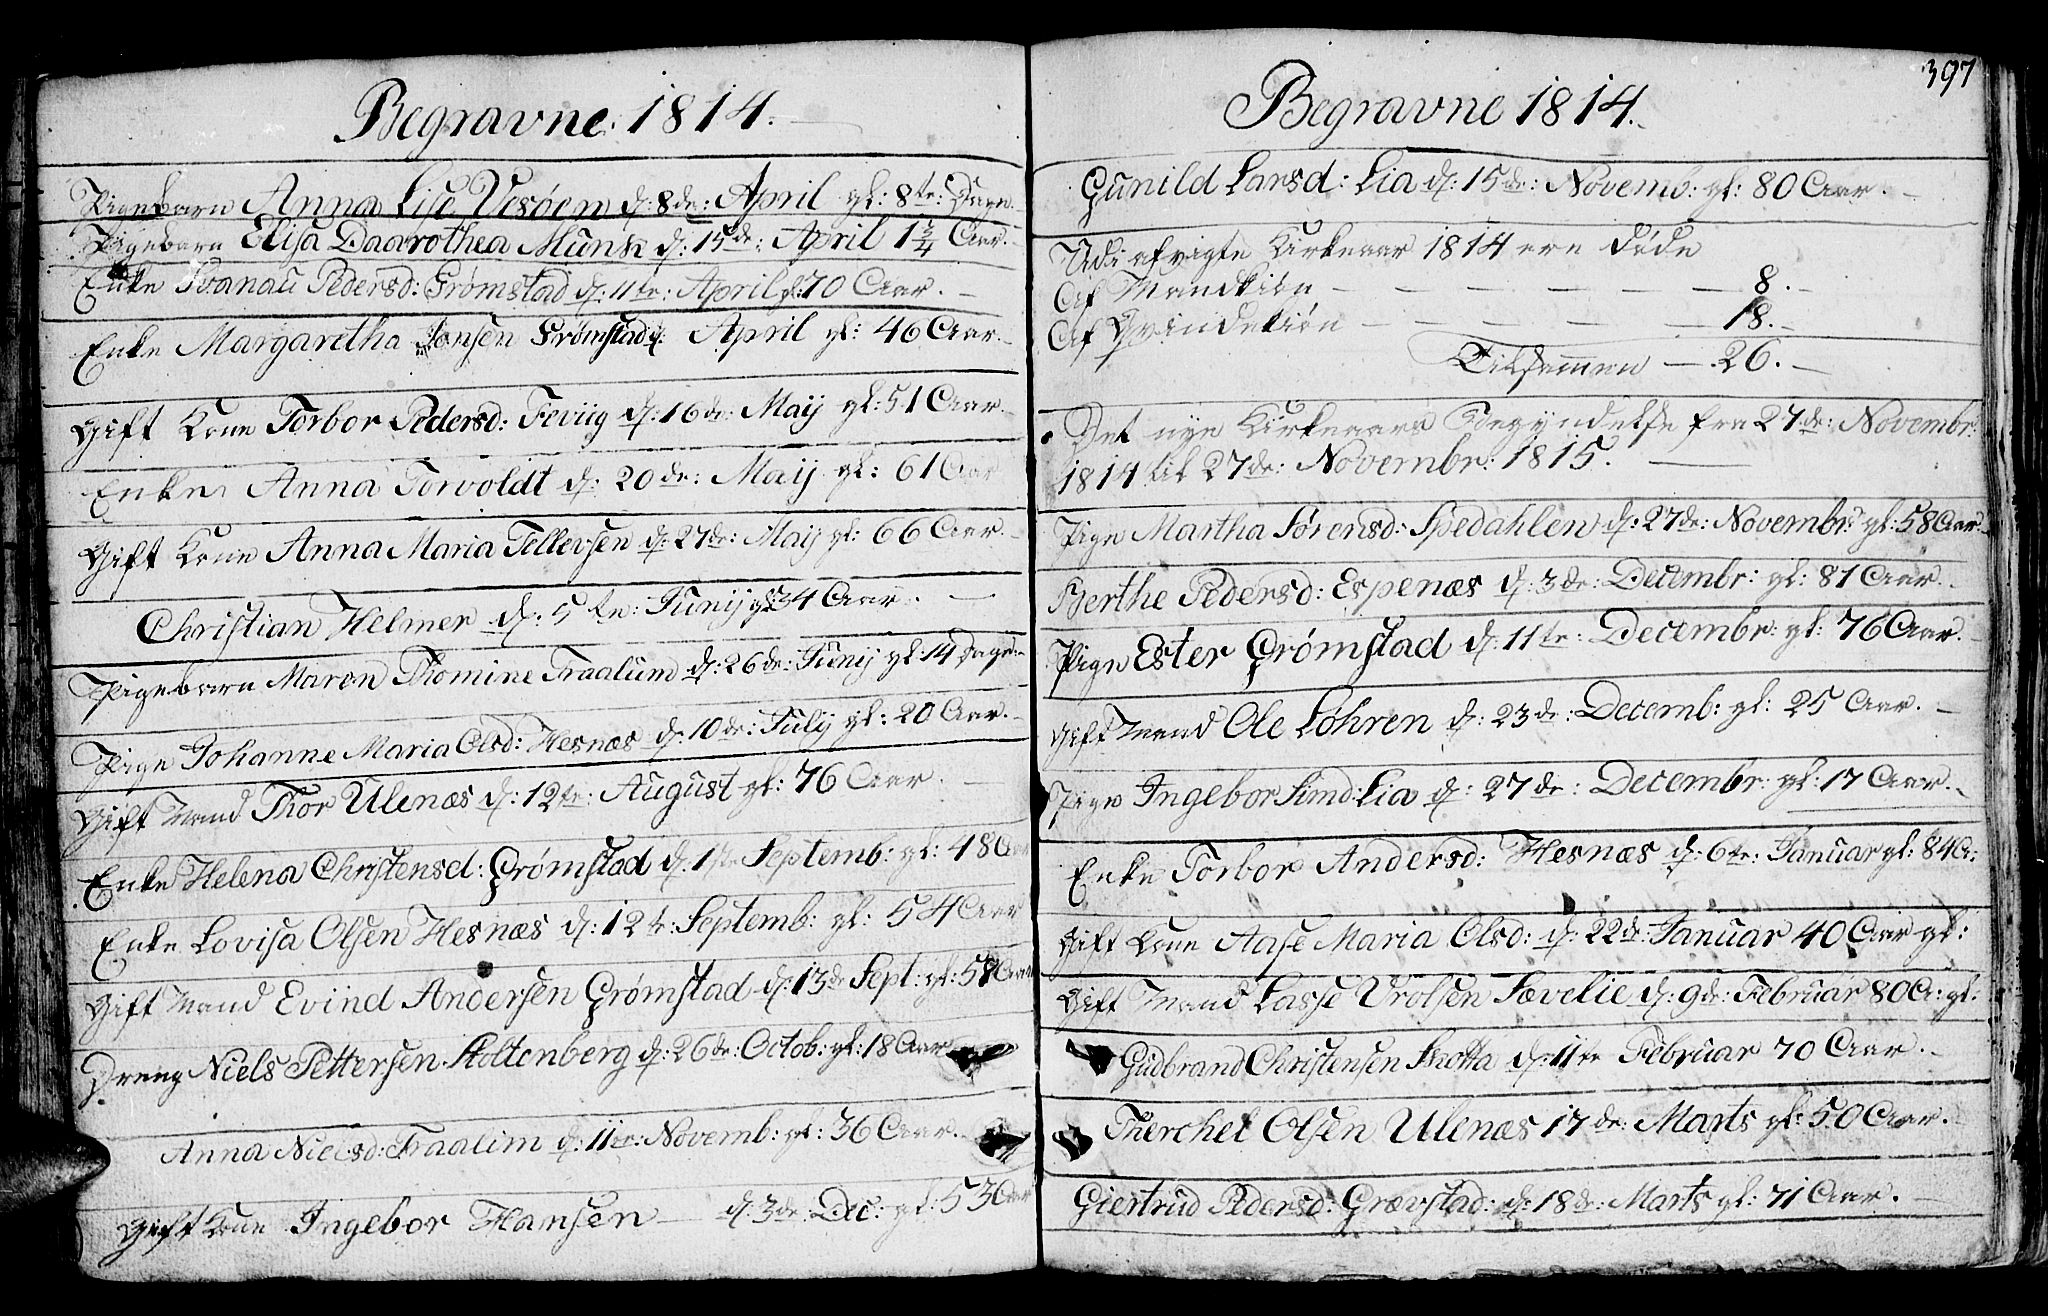 Begravne 1814.
Pigebarn Anna Lise Vesöen d: 8de: April gl: 8te: Dage.
Pigebarn Elisa Daarothea Munk d: 15de: April 1 3/4 Aar.
Enke Ivanau Pedersd: Grømstad d: 11te: April gl: 70 Aar.
Enke Margaretha Jonsen Grømstad d: April gl: 46 Aar.
Gift Kone Torbor Pedersd: Feviig d: 16de: Maij gl: 51 Aar.
Enke Anna Torvoldt d: 20de: Maij gl: 61 Aar
Gift Kone Anna Maria Tellevsen d: 27de: Maij gl: 66 Aar.
Christian Helmer d: 5te: Junij gl: 34 Aar.
Pigebarn Maren Thomine Fraalum d: 26de: Junij gl: 14 Dage.
Pige Johanne Maria Olsd: Hesnæs d: 10de: July gl: 20 Aar.
Gift Mand Thor Ulenæs d: 12te: August gl: 76 Aar.
Enke Helena Christensd: Grømstad d: 1ste Septemb: gl: 48 Aar
Enke Lovisa Olsen Hesnæs d: 12te: Septemb: gl: 54 Aar
Gift Mand Evind Andersen Grømstad d: 13de Sept: gl: 58 Aar
Dreng Niels Pettersen Stoltenberg d: 26de: Octob: gl: 18 Aar
Anna Nielsd: Fraalim d: 11te: Novemb: gl: 36 Aar.
Gift Kone Ingebor Hansen d: 3de Dec: gl: 53 Aar
397
Begravne 1814.
Gunild Larsd: Lia d: 15de: Novemb: gl: 80 Aar.
Udi afvigte Kirkeaar 1814 ere døde
Af Mandkiön 8.
Af Qvindekiön 18.
Tilsammen 26.
Det nye Kirkeaars Begyndelse fra 27de: Novembr:
1814 til 27de: Novembr: 1815.
Pige Martha Sørensd: Spedahlen d: 27de: Novembr: gl: 58 Aar.
Berthe Pedersd: Espenæs d: 3de: Decembr: gl: 81 Aar.
Pige Ester Grømstad d: 11te: Decembr: gl: 76 Aar.
Gift Mand Ole Löhren d: 23de: Decemb: gl: 25 Aar.
Pige Ingebor Simd: Lia d: 27de: Decembr: gl: 17 Aar.
Enke Torbor Andersd: Hesnæs d: 6te: Januar gl: 84 A:
Gift Kone Aase Maria Olsd: d: 22de: Januar 40 Aar gl:
Gift Mand Lasse Vrolsen Sævelie d: 9de: Februar 80 A: gl:
Gudbrand Christensen Skotta d: 11te Februar 70 Aar.
Therchel Olsen Ulenæs 17de: Marts gl: 50 Aar.
Giertrud Pedersd: Grævstad: d: 18de: Marts gl: 71 Aar.